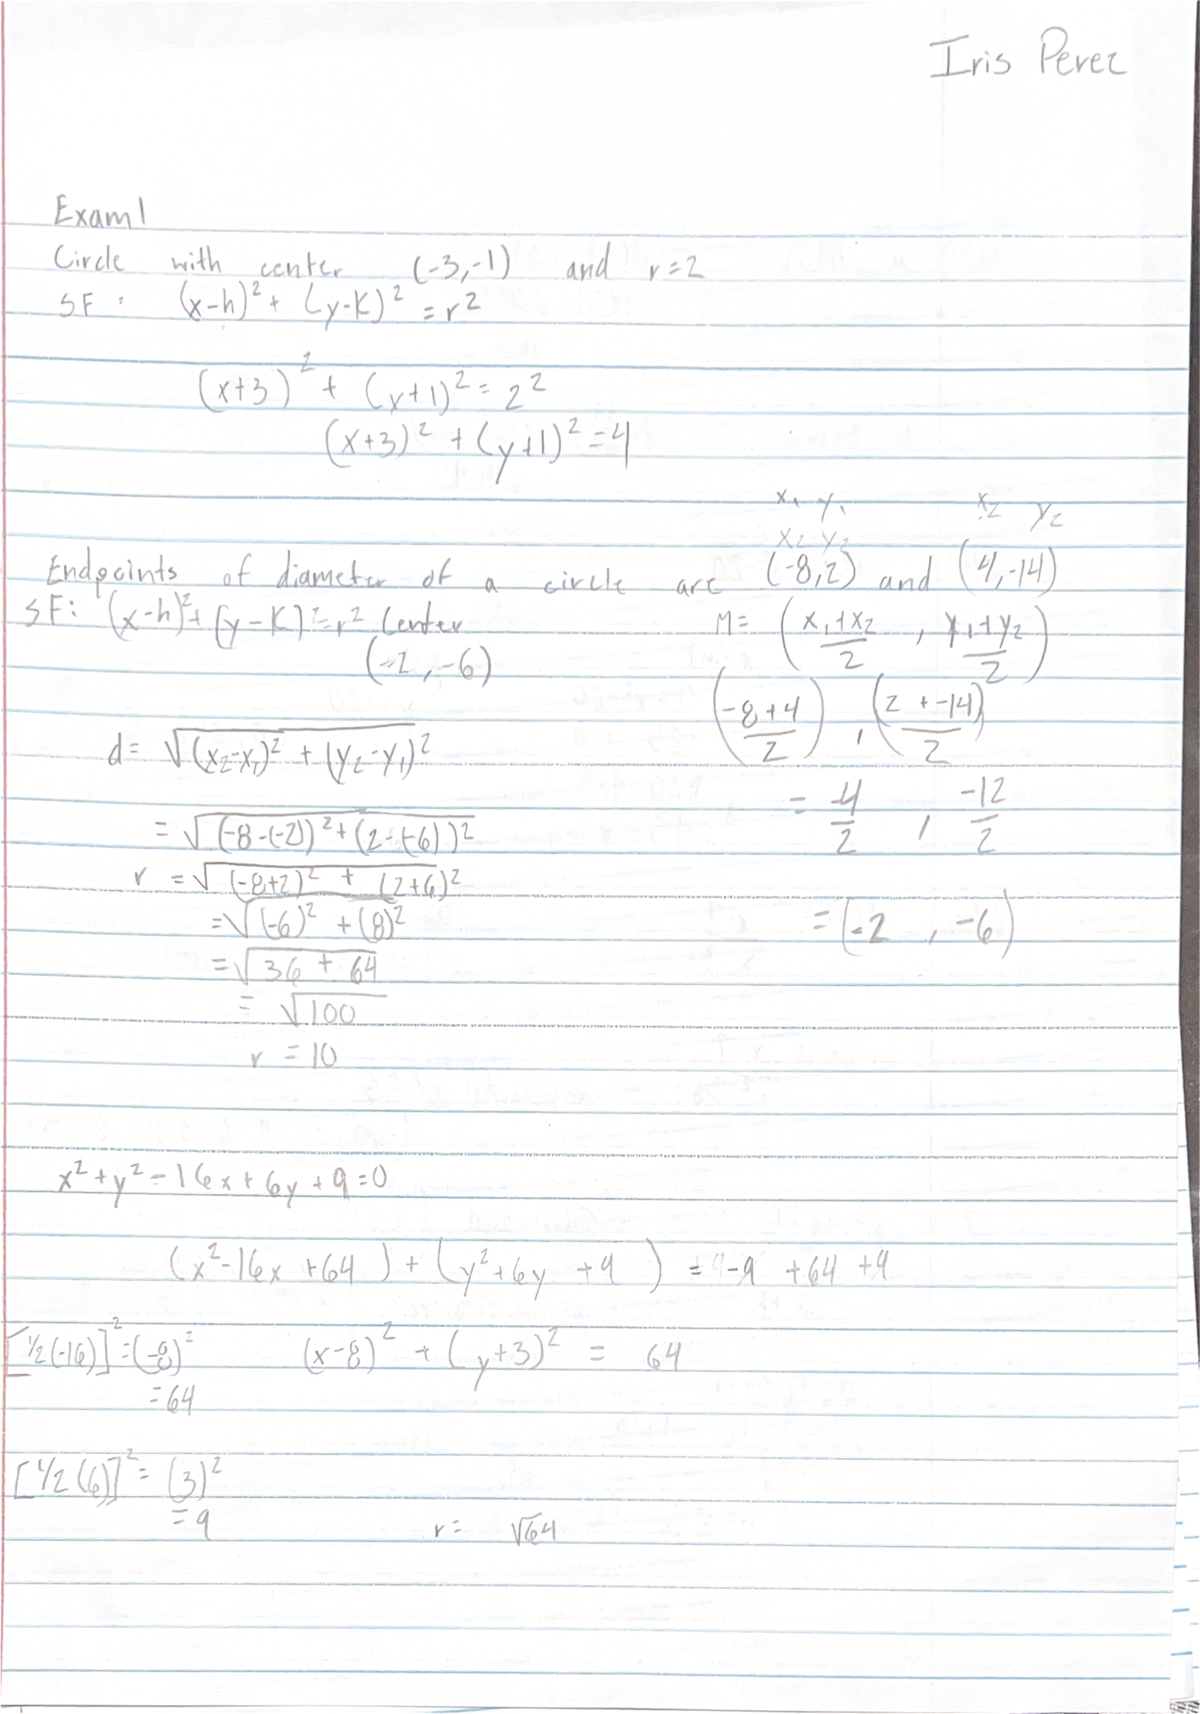 Iris Perez
Exam 1
Circle with center (-3,-1) and r=2
SF: (x-h)² + (y-K)² = r²
(x+3)² + (y+1)² = 2²
(x+3)² + (y+1)² = 4
x₁ y₁ x₂ y₂
x₂ y₂
Endpoints of diameter of a circle are (-8,2) and (4,-14)
SF: (x-h)² + (y-K)² = r² Center
(-2, -6)
M= (x₁+x₂/2 , y₁+y₂/2)
(-8+4/2) , (2+-14/2)
d= √(x₂-x₁)² + (y₂-y₁)²
= -4/2 , -12/2
= √(-8-(-2))² + (2-(-6))²
r = √(-8+2)² + (2+6)²
= √(-6)² + (8)²
= (-2 , -6)
= √36 + 64
= √100
r = 10
x² + y² - 16x + 6y + 9 = 0
(x² - 16x + 64) + (y² + 6y + 9) = -9 + 64 + 9
[1/2(-16)]² = (-8)²
= 64
(x-8)² + (y+3)² = 64
[1/2(6)]² = (3)²
= 9
r = √64